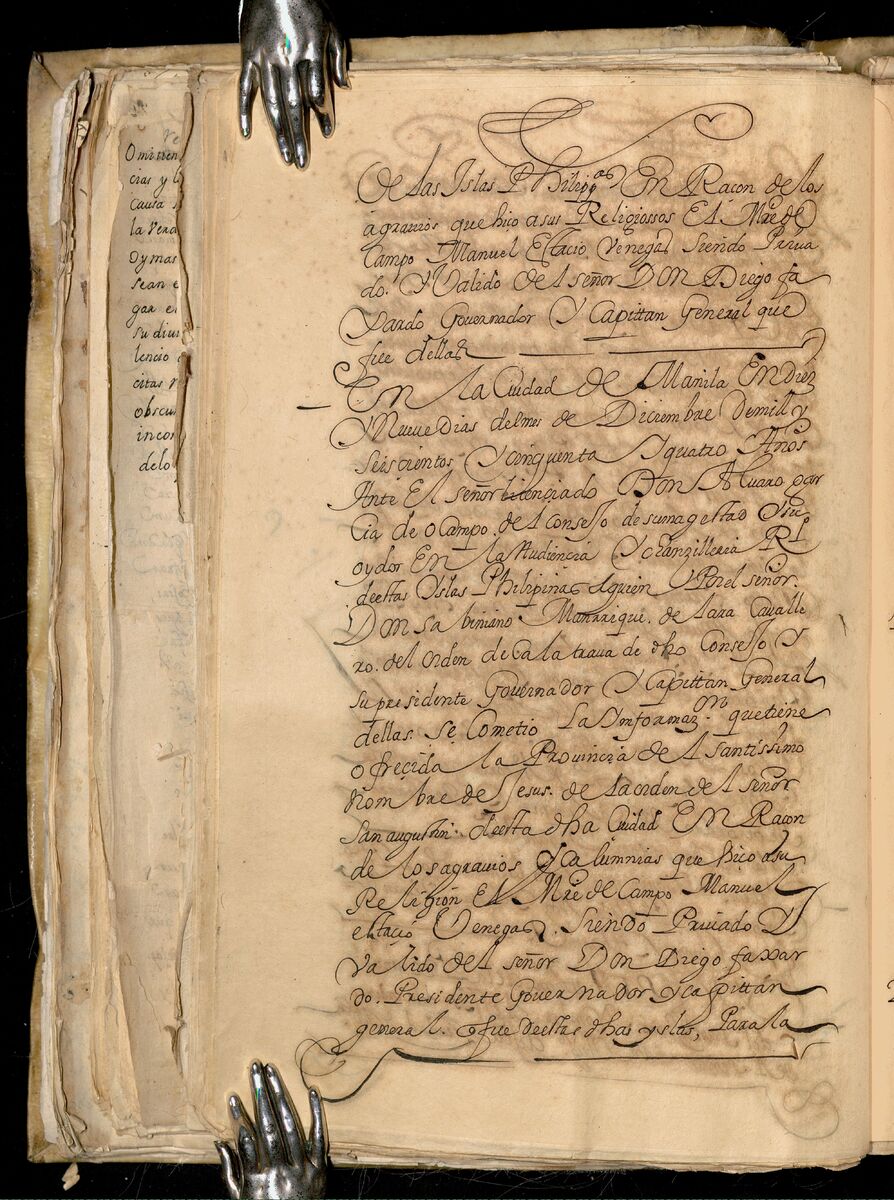 Omitien
cias y l
causa
la verd
oymas
sean e
gar e
su diu
lencio
citas
obscu
incon
delo
De las Islas Philippas En Racon de los
agrauios que hico a sus Religiossos El Mre de
Campo Manuel Estacio Venegas Siendo Priua
do. Y Valido del señor Don Diego fa
xardo Gouernador Y Capittan General que
fue dellas
En la Ciudad de Manila En diez
Y Nueue dias del mes de Diciembre de mill y
Seiscientos Y cinquenta Y quatro Años
Ante El señor licenciado Don Aluaro gar
cia de ocampo. del consejo de su magestad Y su
oydor En la Audiencia Y chanzilleria Rl
de estas Yslas Philipinas a quien Por el señor.
Don sabiniano Manrrique. de lara Caualle
ro. del orden de calatraua de dho Consejo Y
su presidente Gouernador Y Capittan General
dellas. Se Cometio La Ynformazon. que tiene
ofreçida la Prouincia del santissimo
nombre de Jesus. de la orden del señor
san augustin. de esta dha Ciudad En Racon
de los agrauios Y calumnias que hico a su
Religion El Mre de Campo Manuel
estacio Venegas. Siendo Priuado Y
Valido del señor Don Diego faxar
do. Presidente Gouernador y capittan
general. q fue de estas dhas yslas, Para la